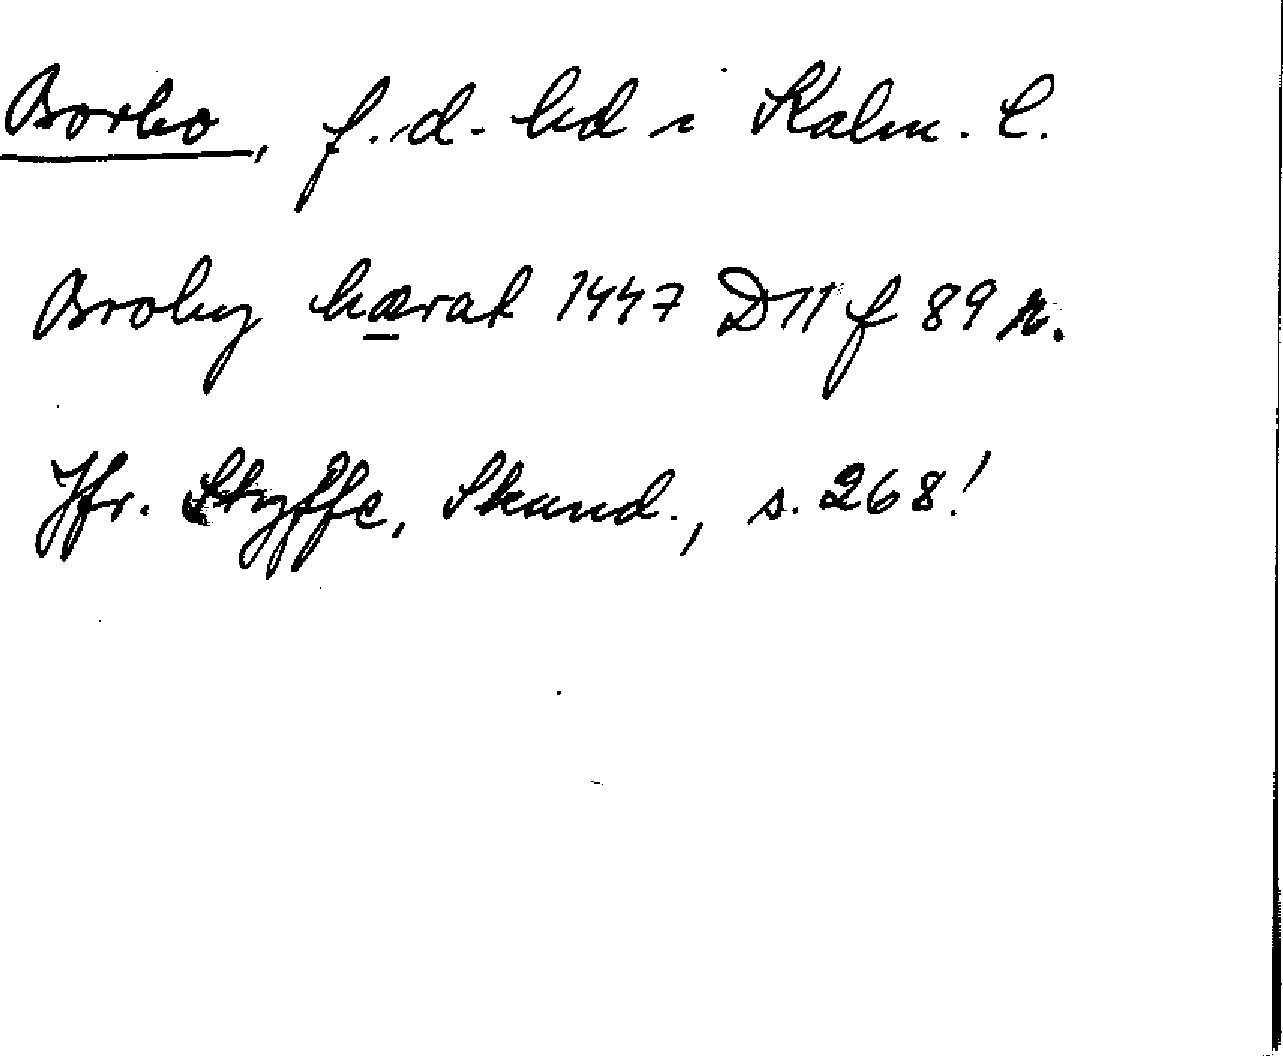 Borbo, f. d. hd i Kalm. l.
Broby hærat 1447 D 11 f 89 r.
Jfr. Styffe, Skand., s. 268!